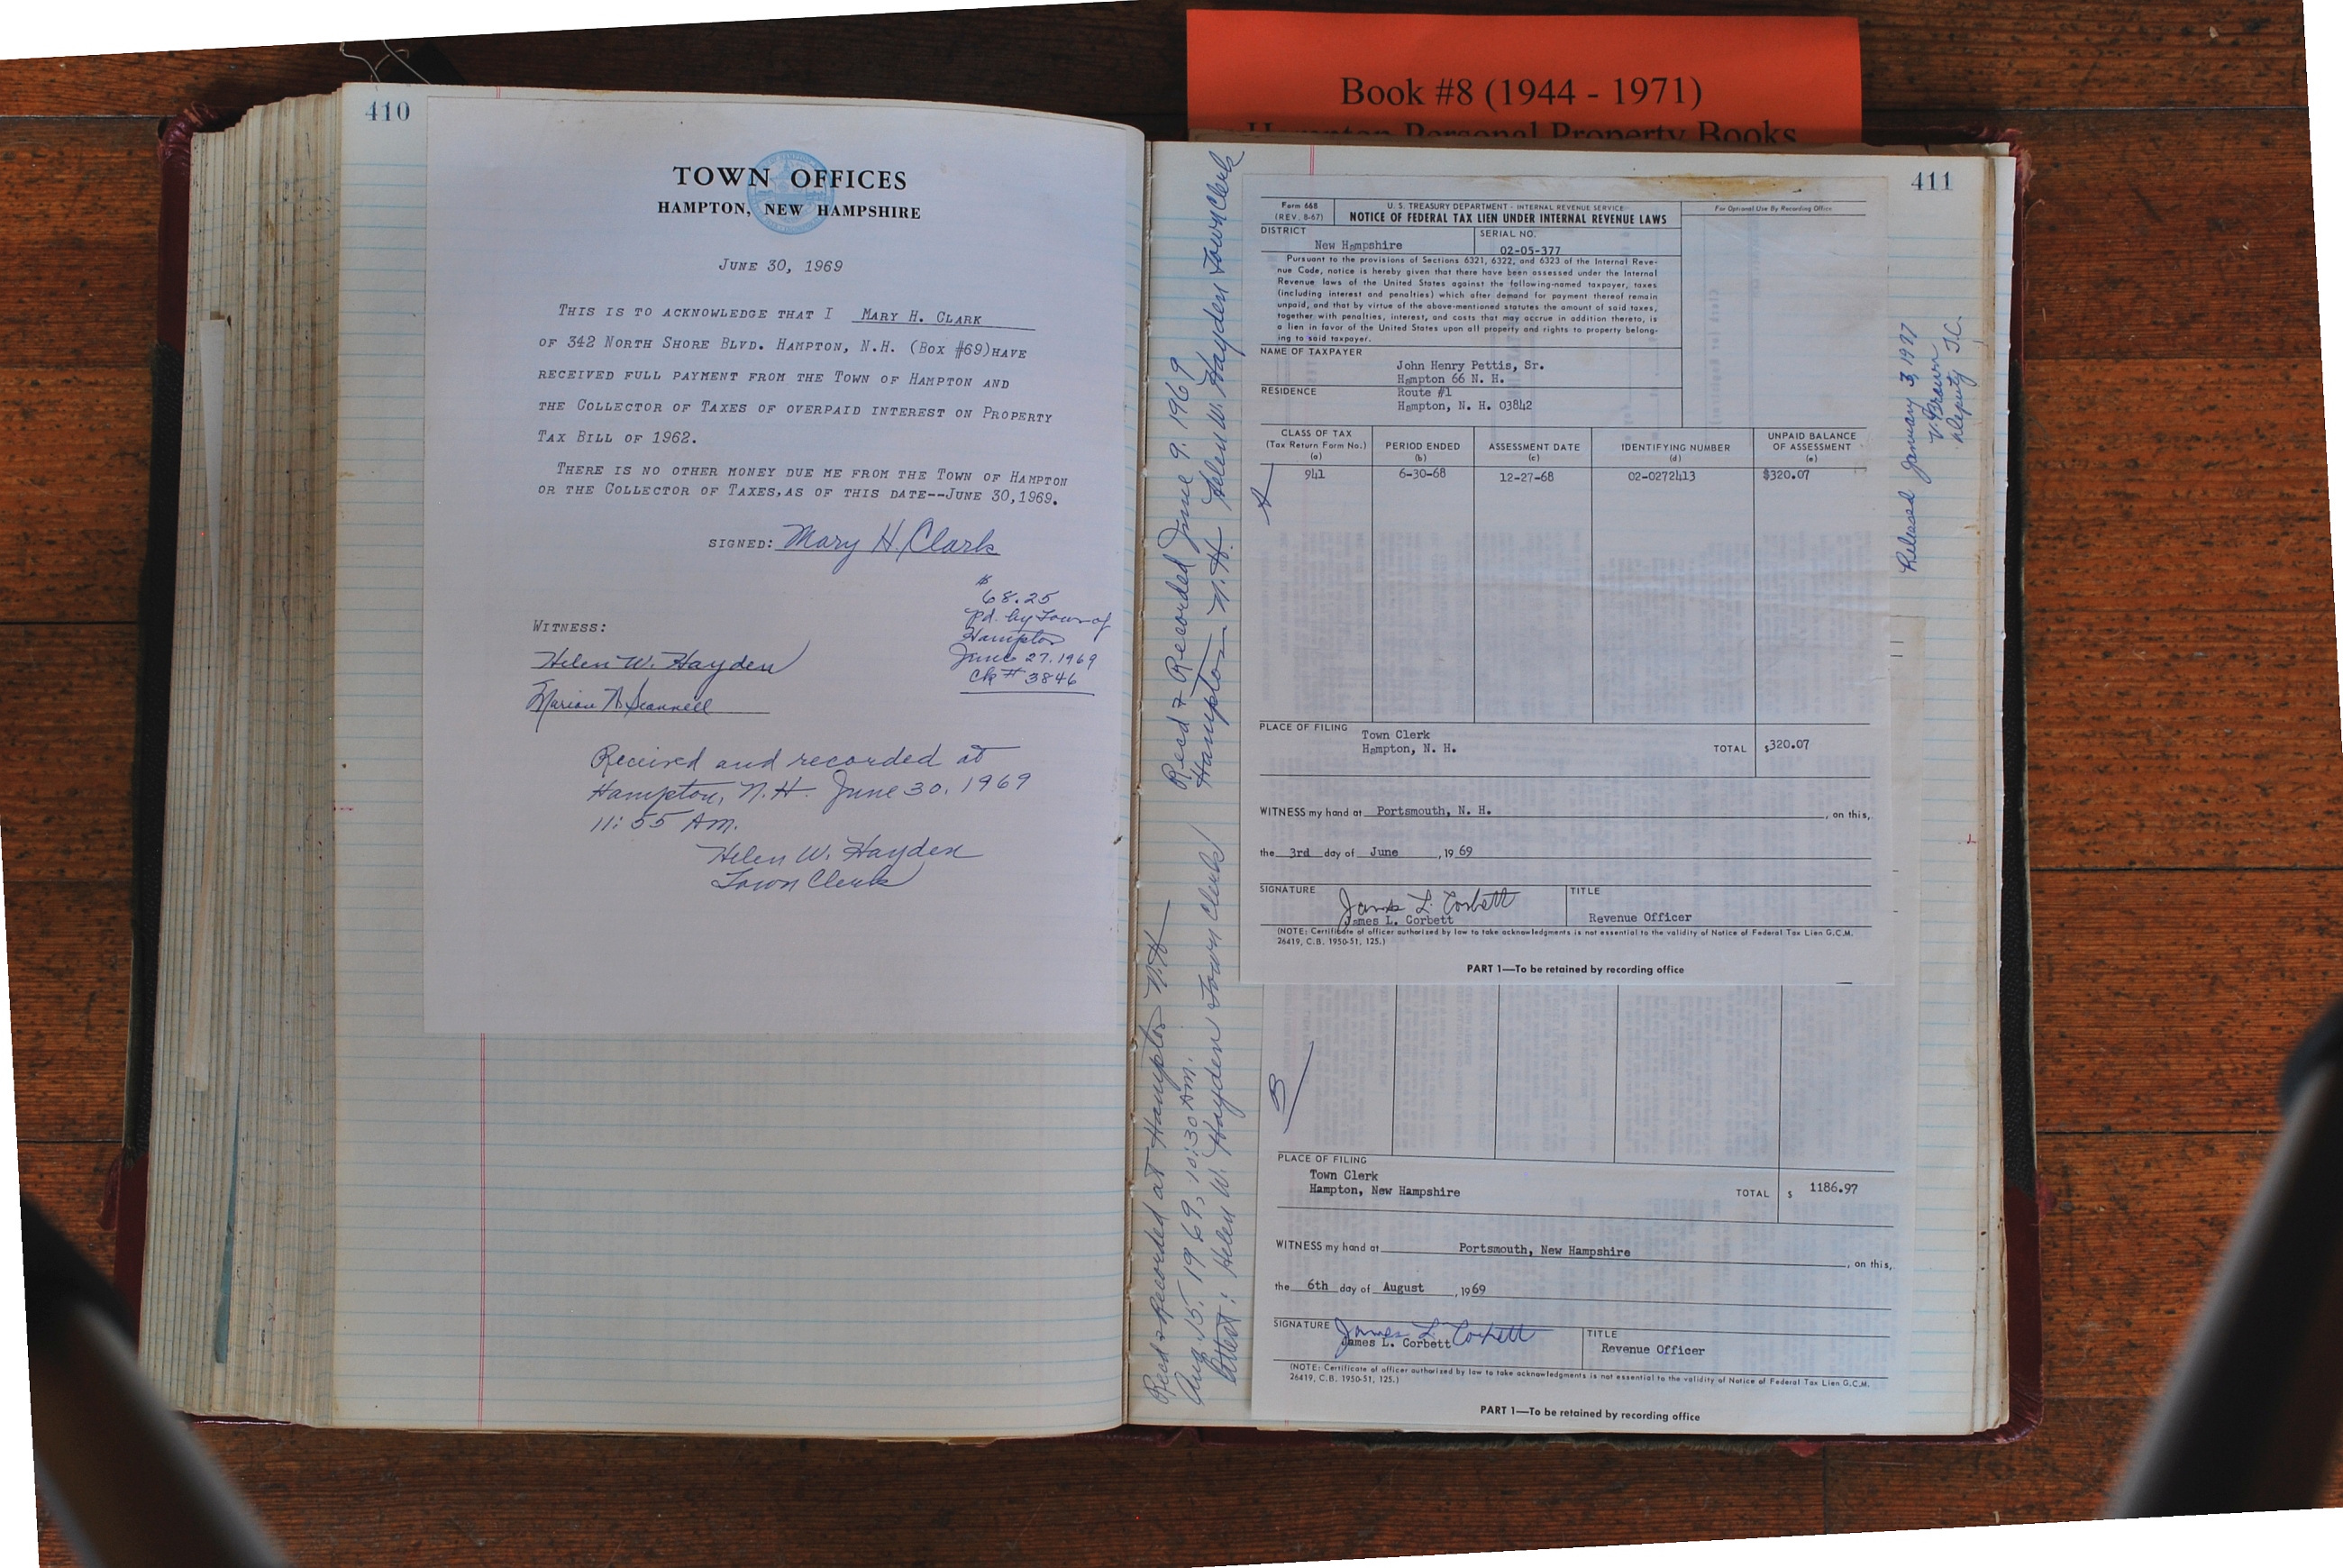 Book #8 (1944 - 1971)
Hampton Personal Property Books
410
TOWN OFFICES
HAMPTON, NEW HAMPSHIRE
JUNE 30, 1969
THIS IS TO ACKNOWLEDGE THAT I MARY H. CLARK
OF 342 NORTH SHORE BLVD. HAMPTON, N.H. (BOX #69)HAVE
RECEIVED FULL PAYMENT FROM THE TOWN OF HAMPTON AND
THE COLLECTOR OF TAXES OF OVERPAID INTEREST ON PROPERTY
TAX BILL OF 1962.
THERE IS NO OTHER MONEY DUE ME FROM THE TOWN OF HAMPTON
OR THE COLLECTOR OF TAXES,AS OF THIS DATE--JUNE 30,1969.
SIGNED: Mary H. Clark
$
68.25
Pd. by Town of
Hampton
June 27. 1969
Ck # 3846
WITNESS:
Helen W. Hayden
Marion
Received and recorded at
Hampton, N.H. June 30, 1969
11:55 AM.
Helen W. Hayden
Town Clerk
411
Recd & Recorded June 9. 1969
Hampton N.H. Helen W. Hayden Town Clerk
A
Form 668
(REV. 8-67)
U. S. TREASURY DEPARTMENT - INTERNAL REVENUE SERVICE
NOTICE OF FEDERAL TAX LIEN UNDER INTERNAL REVENUE LAWS
For Optional Use By Recording Office
DISTRICT
New Hampshire
SERIAL NO.
02-05-377
Pursuant to the provisions of Sections 6321, 6322, and 6323 of the Internal Reve-
nue Code, notice is hereby given that there have been assessed under the Internal
Revenue laws of the United States against the following-named taxpayer, taxes
(including interest and penalties) which after demand for payment thereof remain
unpaid, and that by virtue of the above-mentioned statutes the amount of said taxes,
together with penalties, interest, and costs that may accrue in addition thereto, is
a lien in favor of the United States upon all property and rights to property belong-
ing to said taxpayer.
NAME OF TAXPAYER
John Henry Pettis, Sr.
Hampton 66 N. H.
RESIDENCE
Route #1
Hampton, N. H. 03842
CLASS OF TAX
(Tax Return Form No.)
(a)
PERIOD ENDED
(b)
ASSESSMENT DATE
(c)
IDENTIFYING NUMBER
(d)
UNPAID BALANCE
OF ASSESSMENT
(e)
941 6-30-68 12-27-68 02-0272413 $320.07
PLACE OF FILING
Town Clerk
Hampton, N. H.
TOTAL $320.07
WITNESS my hand at Portsmouth, N. H. , on this,
the 3rd day of June , 19 69
SIGNATURE
James L. Corbett
James L. Corbett
TITLE
Revenue Officer
(NOTE: Certificate of officer authorized by law to take acknowledgments is not essential to the validity of Notice of Federal Tax Lien G.C.M.
26419, C.B. 1950-51, 125.)
PART 1—To be retained by recording office
Released January 3, 1977
V. Brown
Deputy T.C.
Recd & Recorded at Hampton N.H.
Aug. 15. 1969, 10:30 AM.
Attest: Helen W. Hayden Town Clerk
B
PLACE OF FILING
Town Clerk
Hampton, New Hampshire
TOTAL $ 1186.97
WITNESS my hand at Portsmouth, New Hampshire , on this,
the 6th day of August , 19 69
SIGNATURE
James L. Corbett
James L. Corbett
TITLE
Revenue Officer
(NOTE: Certificate of officer authorized by law to take acknowledgments is not essential to the validity of Notice of Federal Tax Lien G.C.M.
26419, C.B. 1950-51, 125.)
PART 1—To be retained by recording office